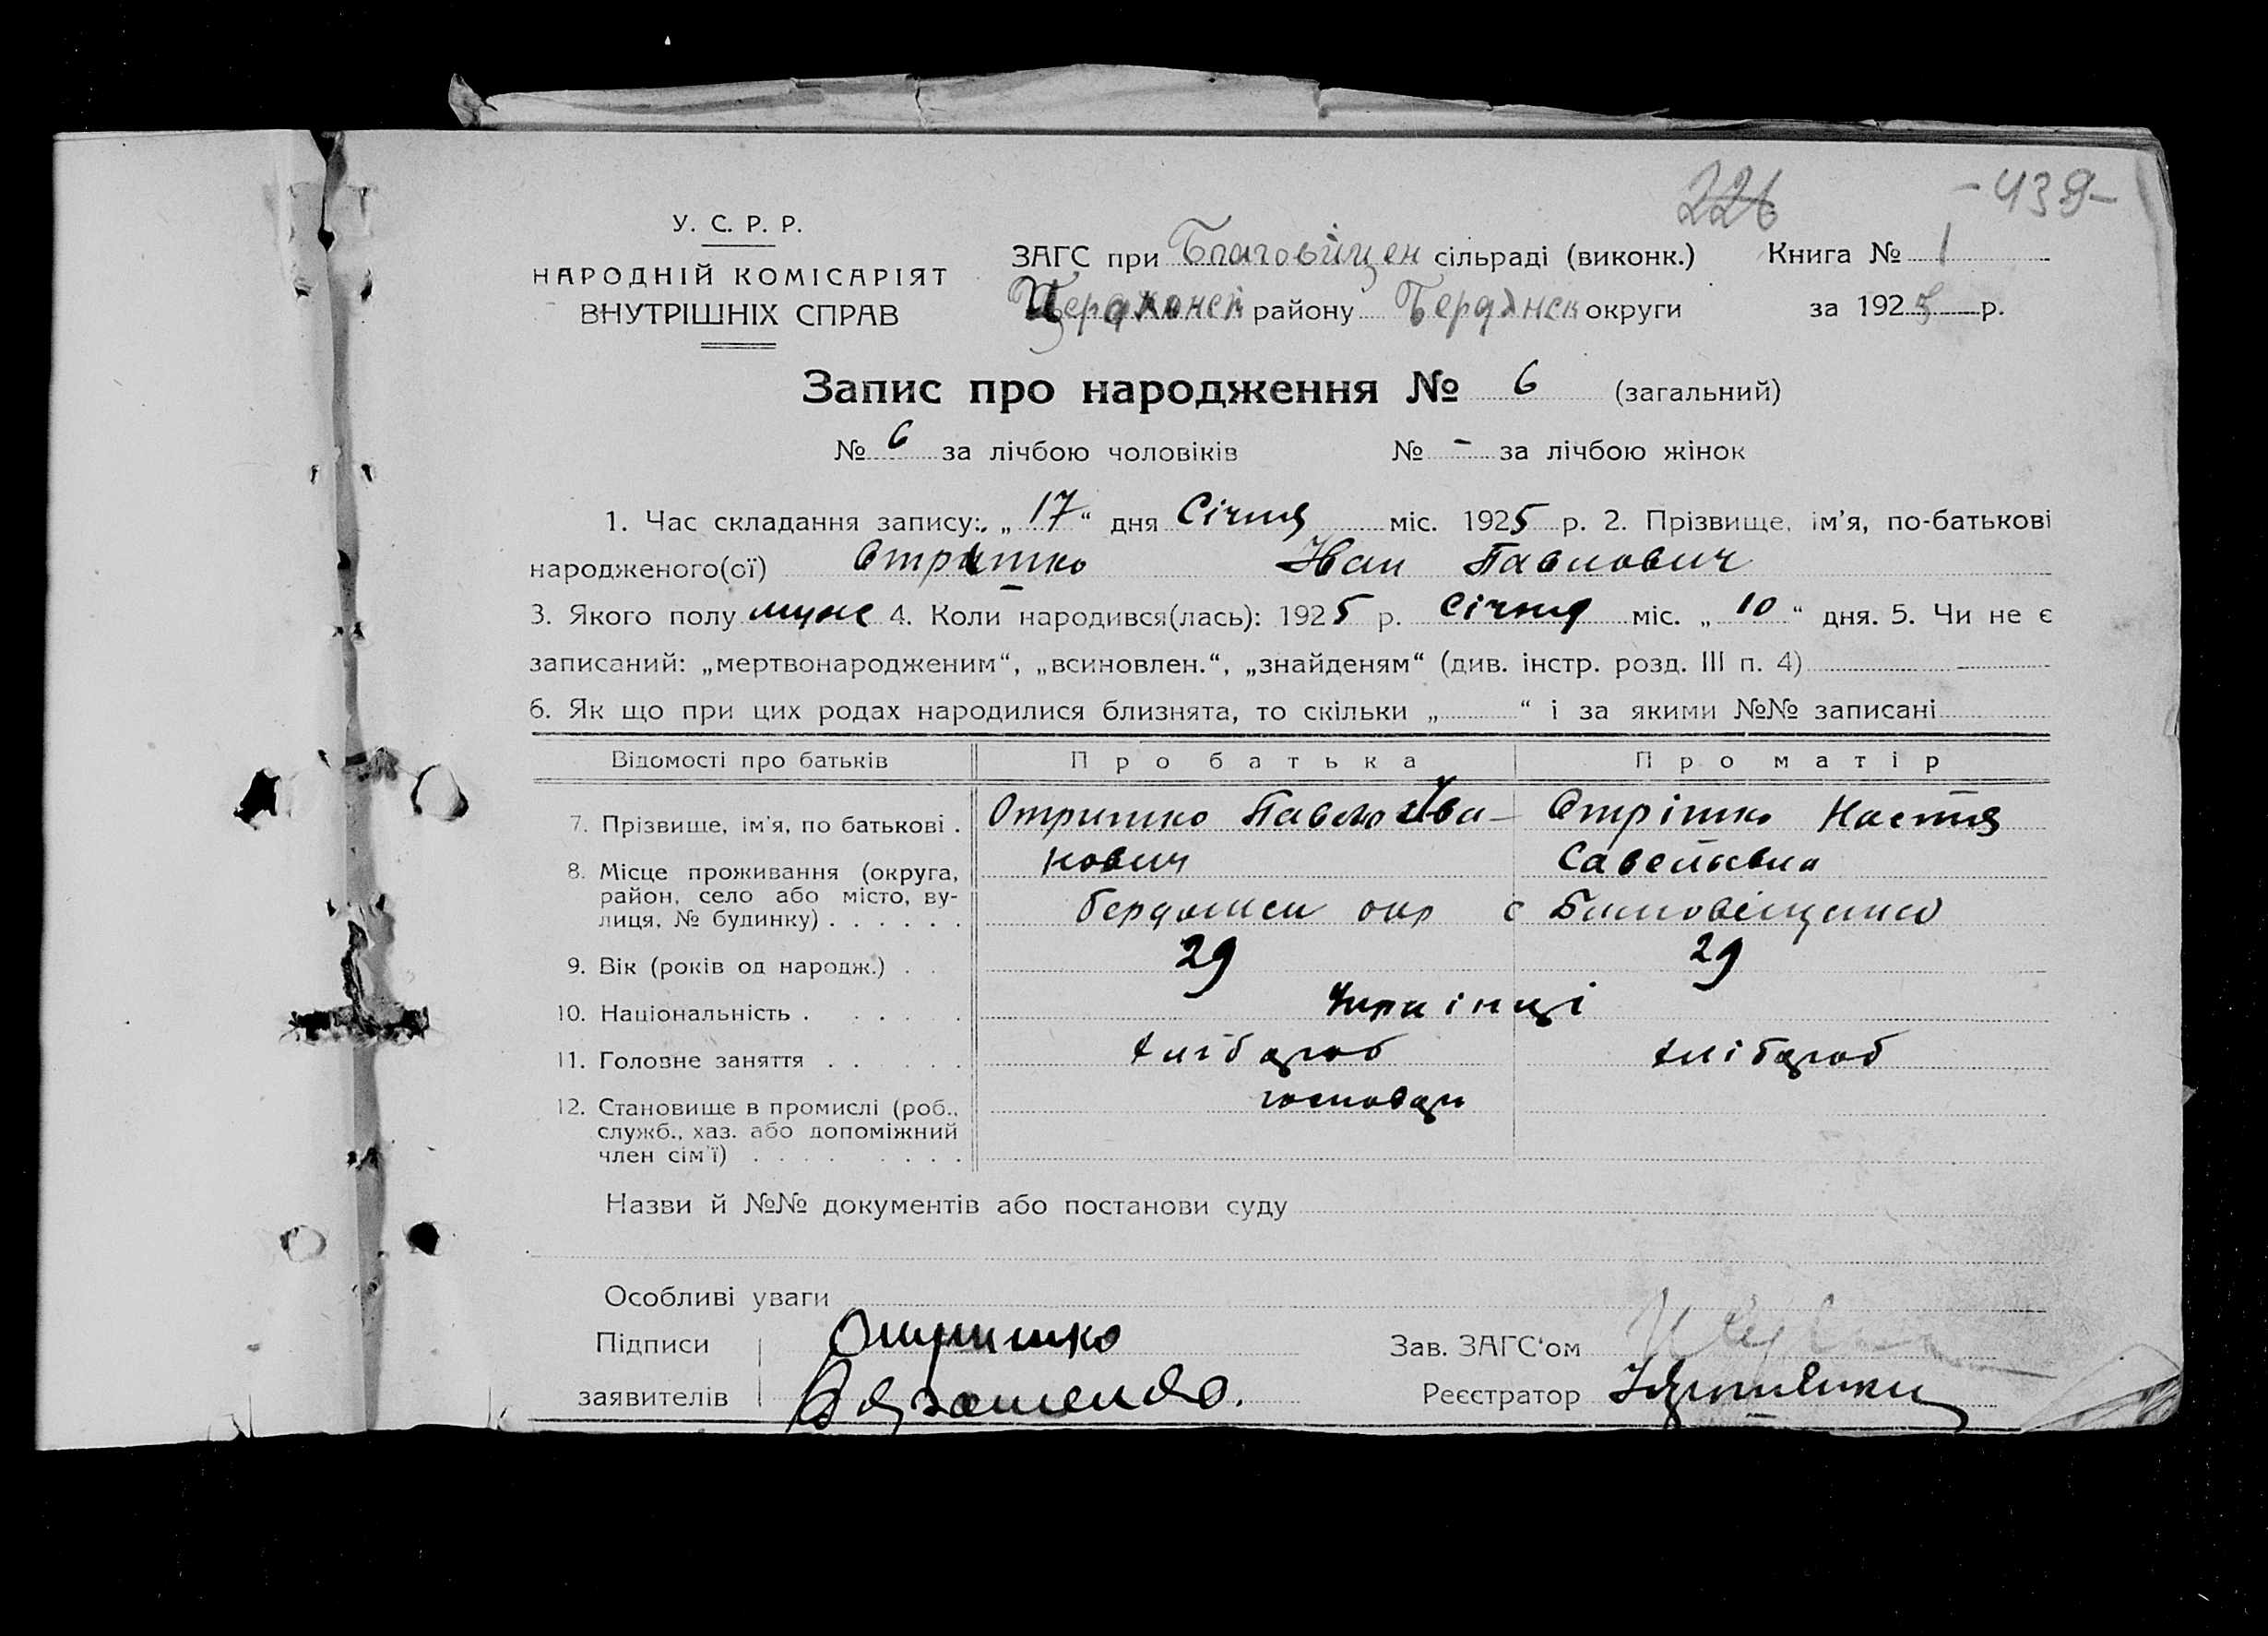 226 -439-
У. С. Р. Р.
НАРОДНІЙ КОМІСАРІЯТ
ВНУТРІШНІХ СПРАВ
ЗАГС при Благовіщен сільраді (виконк.) Книга № 1
району Бердянск округи за 1925 р.
Запис про народження № 6 (загальний)
№ 6 за лічбою чоловіків № - за лічбою жінок
1. Час складання запису: „17“ дня Січня міс. 1925 р. 2. Прізвище, ім'я, по-батькові
народженого(ої) Отришко Іван Павлович
3. Якого полу муж 4. Коли народився(лась): 1925 р. Січня міс. „10“ дня. 5. Чи не є
записаний: „мертвонародженим“, „всиновлен.“, „знайденям“ (див. інстр. розд. III п. 4)
6. Як що при цих родах народилися близнята, то скільки „ “ і за якими №№ записані
Відомості про батьків Про батька Про матір
7. Прізвище, ім'я, по батькові . Отришко Павло Іва- Отрішко Настя
нович Савельевна
8. Місце проживання (округа, район, село або місто, вулиця, № будинку) . . . . . . Бердянськ окр с Благовіщенка
9. Вік (років од народж.) . . 29 29
10. Національність . . . . . . Українці
11. Головне заняття . . . . . . хлібороб хлібороб
12. Становище в промислі (роб., господар
служб., хаз. або допоміжний
член сім'ї) . . . . . . . .
Назви й №№ документів або постанови суду
Особливі уваги
Підписи Отришко Зав. ЗАГС'ом
заявителів Реєстратор